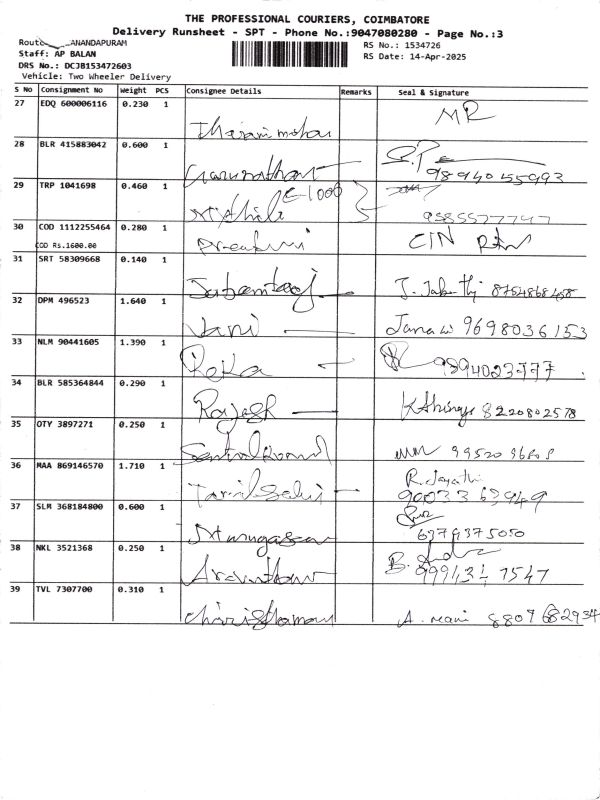 THE PROFESSIONAL COURIERS, COIMBATORE
Delivery Runsheet - SPT - Phone No.:9047080280 - Page No.:3
Route: ANANDAPURAM
RS No.: 1534726
Staff: AP BALAN
RS Date: 14-Apr-2025
DRS No.: DCJB153472603
Vehicle: Two Wheeler Delivery
S No Consignment No Weight PCS Consignee Details Remarks Seal & Signature
27 EDQ 600006116 0.230 1 MR
28 BLR 415883042 0.600 1
9894055993
29 TRP 1041698 0.460 1
9585577747
30 COD 1112255464 0.280 1 CIN
COD Rs.1600.00
31 SRT 58309668 0.140 1 8754868458
32 DPM 496523 1.640 1 Vani 9698036153
33 NLM 90441605 1.390 1 Reka 9894023777
34 BLR 585364844 0.290 1 Rajesh 8220802578
35 OTY 3897271 0.250 1
36 MAA 869146570 1.710 1 Tamil Selvi R. Jayathi
9003363949
37 SLM 368184800 0.600 1 Murugesan
6379375050
38 NKL 3521368 0.250 1
39 TVL 7307700 0.310 1 A. mani 8807682934